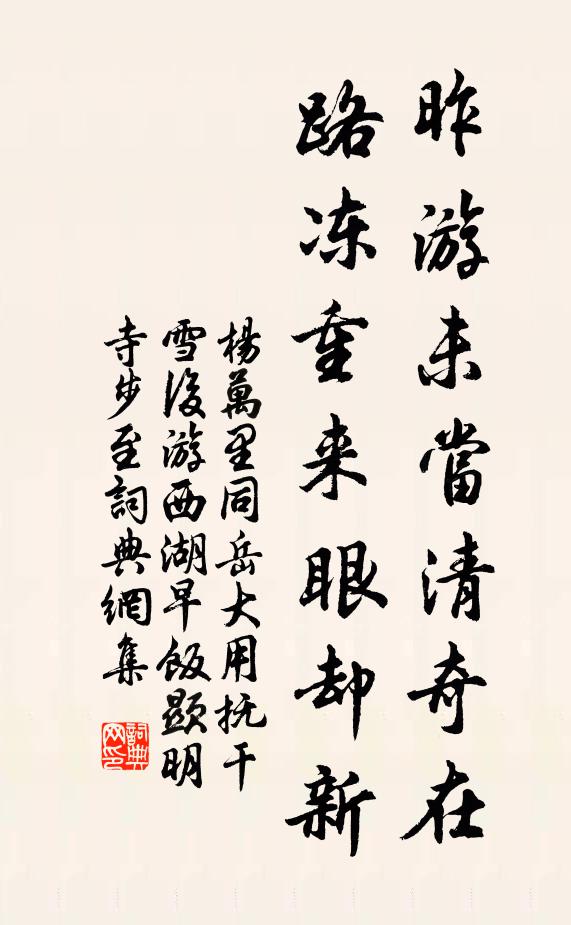 昨游未當清奇在
路冻重来眼却新
楊萬里同岳大用抚干
雪後游西湖早飯顯明
寺步至詞典網集
詞典
网印